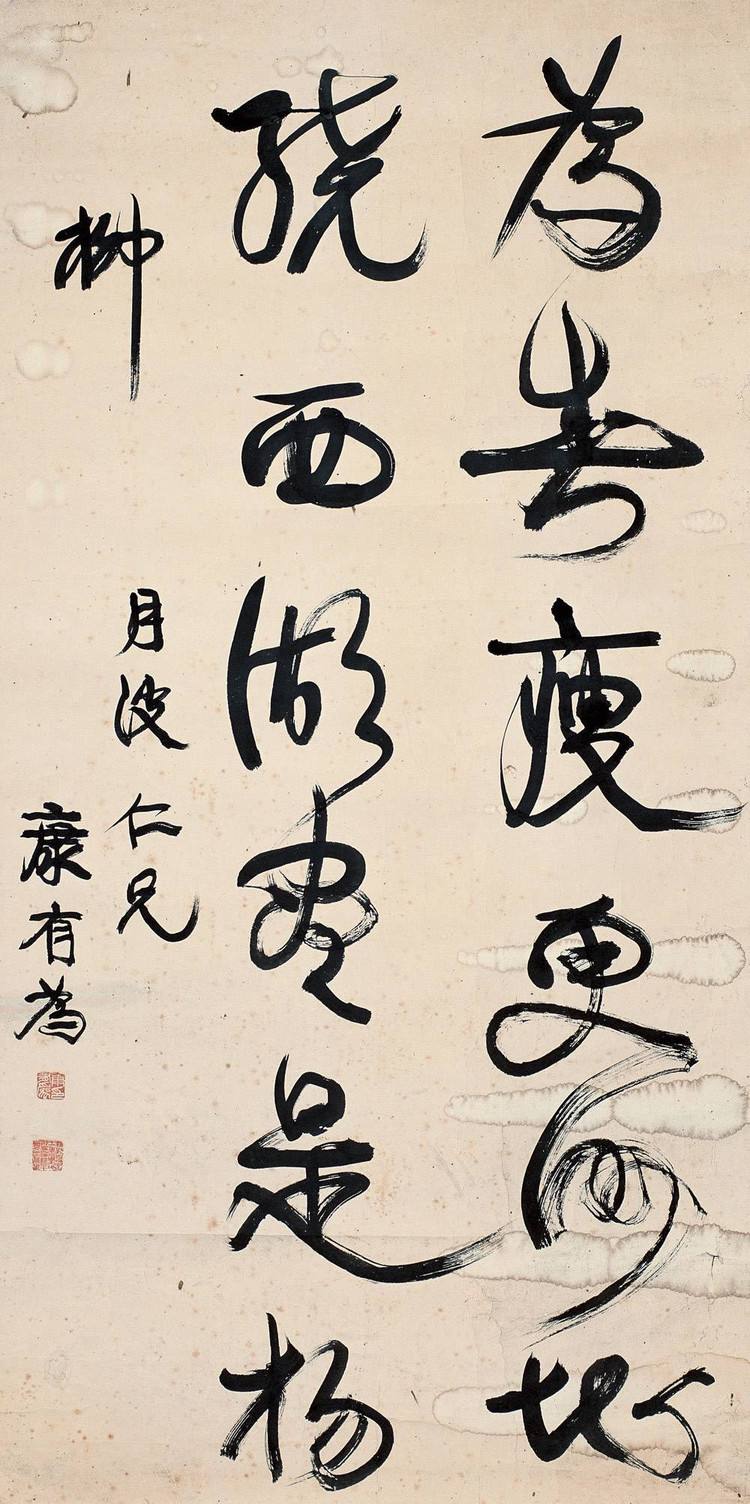 為春瘦更何堪
繞西湖盡是楊
柳
月波仁兄
康有為